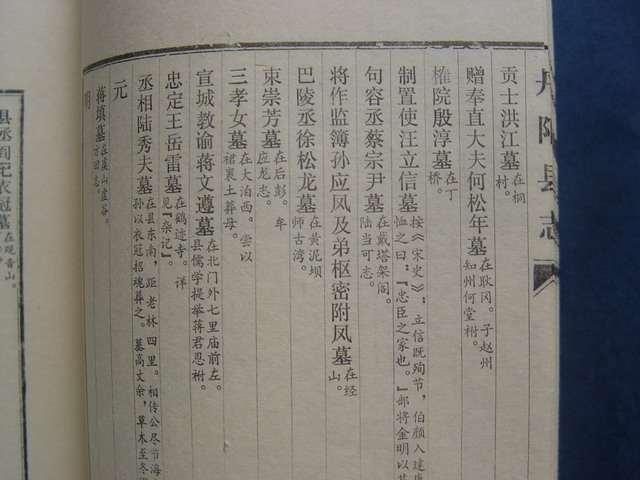 丹阳县志
贡士洪江墓 在桐村。
赠奉直大夫何松年墓 在耿冈。子赵州知州何堂祔。
榷院殷淳墓 在丁桥。
制置使汪立信墓 按《宋史》:立信既殉节,伯颜入建
恤之曰:『忠臣之家也。』部将金明以其
句容丞蔡宗尹墓 在戴塔架阁。陆当可志。
将作监簿孙应凤及弟枢密附凤墓 在经山。
巴陵丞徐松龙墓 在黄泥坝师古湾。
束崇芳墓 在后彭。牟应龙志。
三孝女墓 在大泊西。尝以裙裹土葬母。
宣城教谕蒋文遵墓 在北门外七里庙前左。县儒学提举蒋君恩祔。
忠定王岳雷墓 在鹤迹寺。详见『杂记』。
丞相陆秀夫墓 在县东南,距老林四里。相传公尽节海
孙以衣冠招魂葬之。墓高丈余,草木至冬
元
蒋填墓 在虞山虚谷。方回志
明
县丞阎衣冠墓 在观音山。